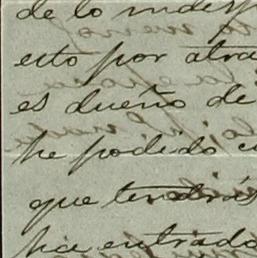 de lo indesp
esto por atra
es dueño de
he podido c
que tendrás
ha entrado